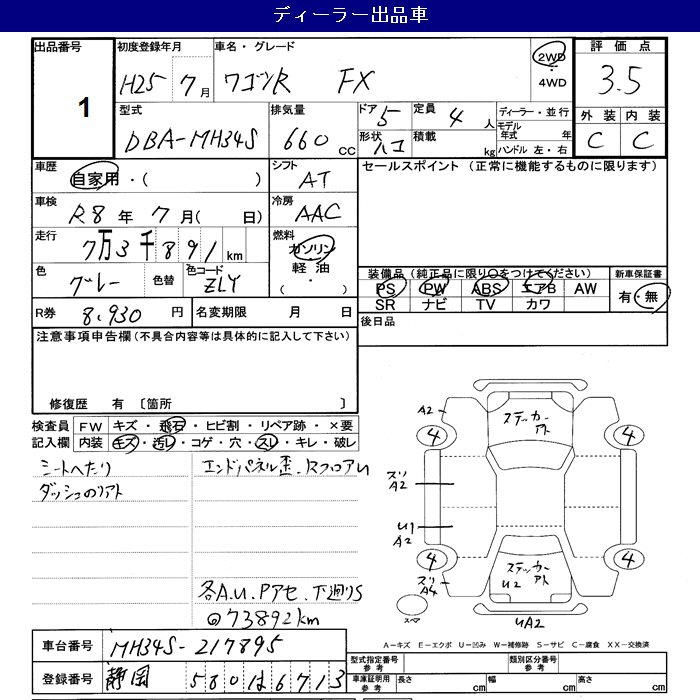 ディーラー出品車
出品番号 1
初度登録年月 H25 7月
車名・グレード ワゴンR FX
2WD・4WD
評価点 3.5
型式 DBA-MH34S
排気量 660cc
ドア 5
形状 ハコ
定員 4人
積載 kg
ディーラー・並行
モデル年式 年
ハンドル 左・右
外装 C
内装 C
車歴 自家用・( )
シフト AT
セールスポイント (正常に機能するものに限ります)
車検 R8年7月( 日)
冷房 AAC
走行 7万3千891km
燃料 ガソリン 軽油 ( ・ )
色 グレー
色替
色コード ZLY
装備品 (純正品に限り○をつけてください)
新車保証書
PS PW ABS エアB AW
SR ナビ TV カワ
有・無
R券 8,930円
名変期限 月 日
後日品
注意事項申告欄(不具合内容等は具体的に記入して下さい)
修復歴 有 〔箇所 〕
検査員記入欄
FW キズ・飛石・ヒビ割・リペア跡・×要
内装 キズ・汚レ・コゲ・穴・スレ・キレ・破レ
シートへたり
エンドパネル歪.RフロアU
ダッシュのリアト
各A.U.Pアセ.下廻りS
◎73892km
ステッカーアト
A2
4
4
スリ A2
U1 A2
4
4
スリ A4
ステッカーアト
U2
スペア
UA2
A-キズ E-エクボ U-凹み W-補修跡 S-サビ C-腐食 XX-交換済
車台番号 MH34S-217895
型式指定番号 参考
類別区分番号 参考
登録番号 静岡 580は6713
車庫証明用 参考
長さ cm
幅 cm
高さ cm